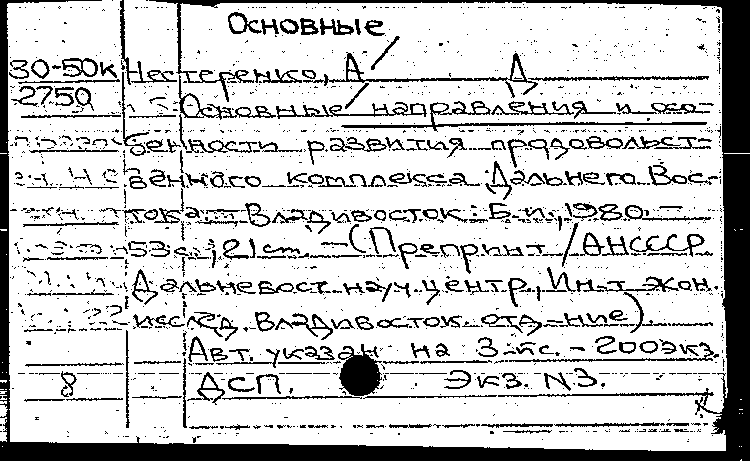 Основные
30-50к Нестеренко, А Д
2750 Основные направления и осо-
бенности развития продовольст-
венного комплекса Дальнего Вос-
тока. – Владивосток: Б.и., 1980. –
53с.; 21 ст. – (Препринт / АНСССР.
Дальневост. науч. центр, Ин-т экон.
исслед. Владивосток. отд-ние).
Авт. указан на 3-й с. – 200экз.
8 ДСП. Экз. N3.